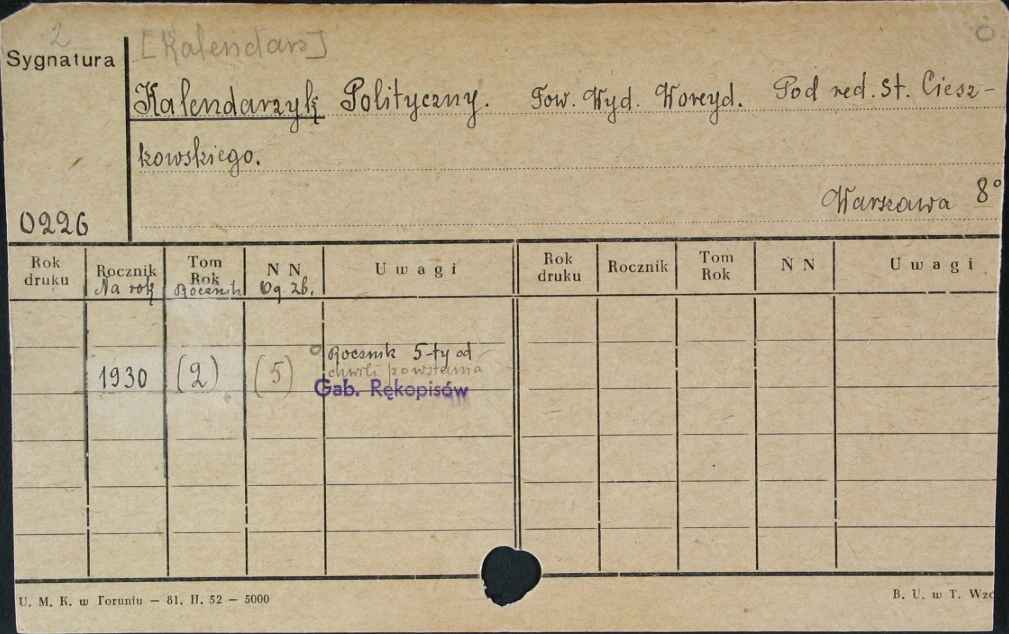 2
[Kalendarz]
Sygnatura
Kalendarzyk Polityczny. Tow. Wyd. Pod red. St. Ciesz-
kowskiego.
Warszawa 8°
0226
Rok druku Rocznik Na rok Tom Rok Rocznik N N Og. zb. Uwagi Rok druku Rocznik Tom Rok N N Uwagi
1930 (2) (5) Rocznik 5-ty od
chwili powstania
Gab. Rękopisów
U. M. K. w Toruniu – 81. II. 52 – 5000
B. U. w T. Wzo